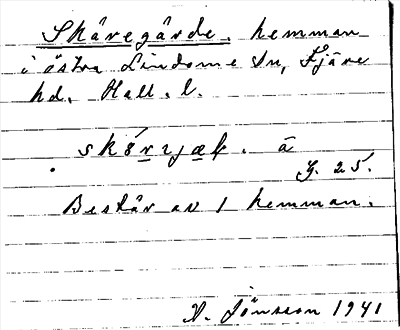 Skåregårde. hemman
i östra Lindome sn, Fjäre
hd. Hall. l.
. ā
G. 25.
Består av 1 hemman.
Jönsson 1941